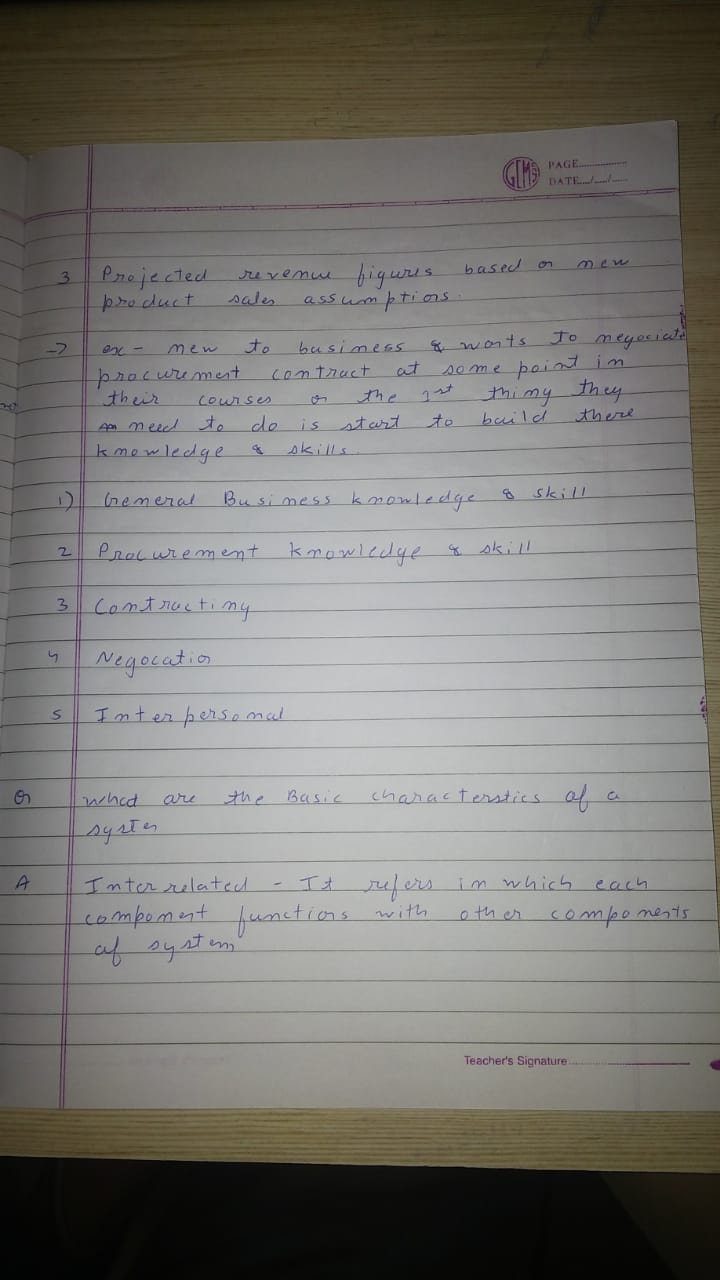 GEMS PAGE..................
DATE..../...../......
3 Projected revenue figures based on new
product sales assumptions.
→ ex - new to business & wants to negociate
procurement contract at some point in
their courses or the 1st thing they
need to do is start to build there
knowledge & skills.
1) General Business knowledge & skill
2 Procurement knowledge & skill
3 Contracting
4 Negocation
5 Interpersonal
Q what are the Basic characterstics of a
system
A Inter related - It refers in which each
component functions with other components
of system
Teacher's Signature